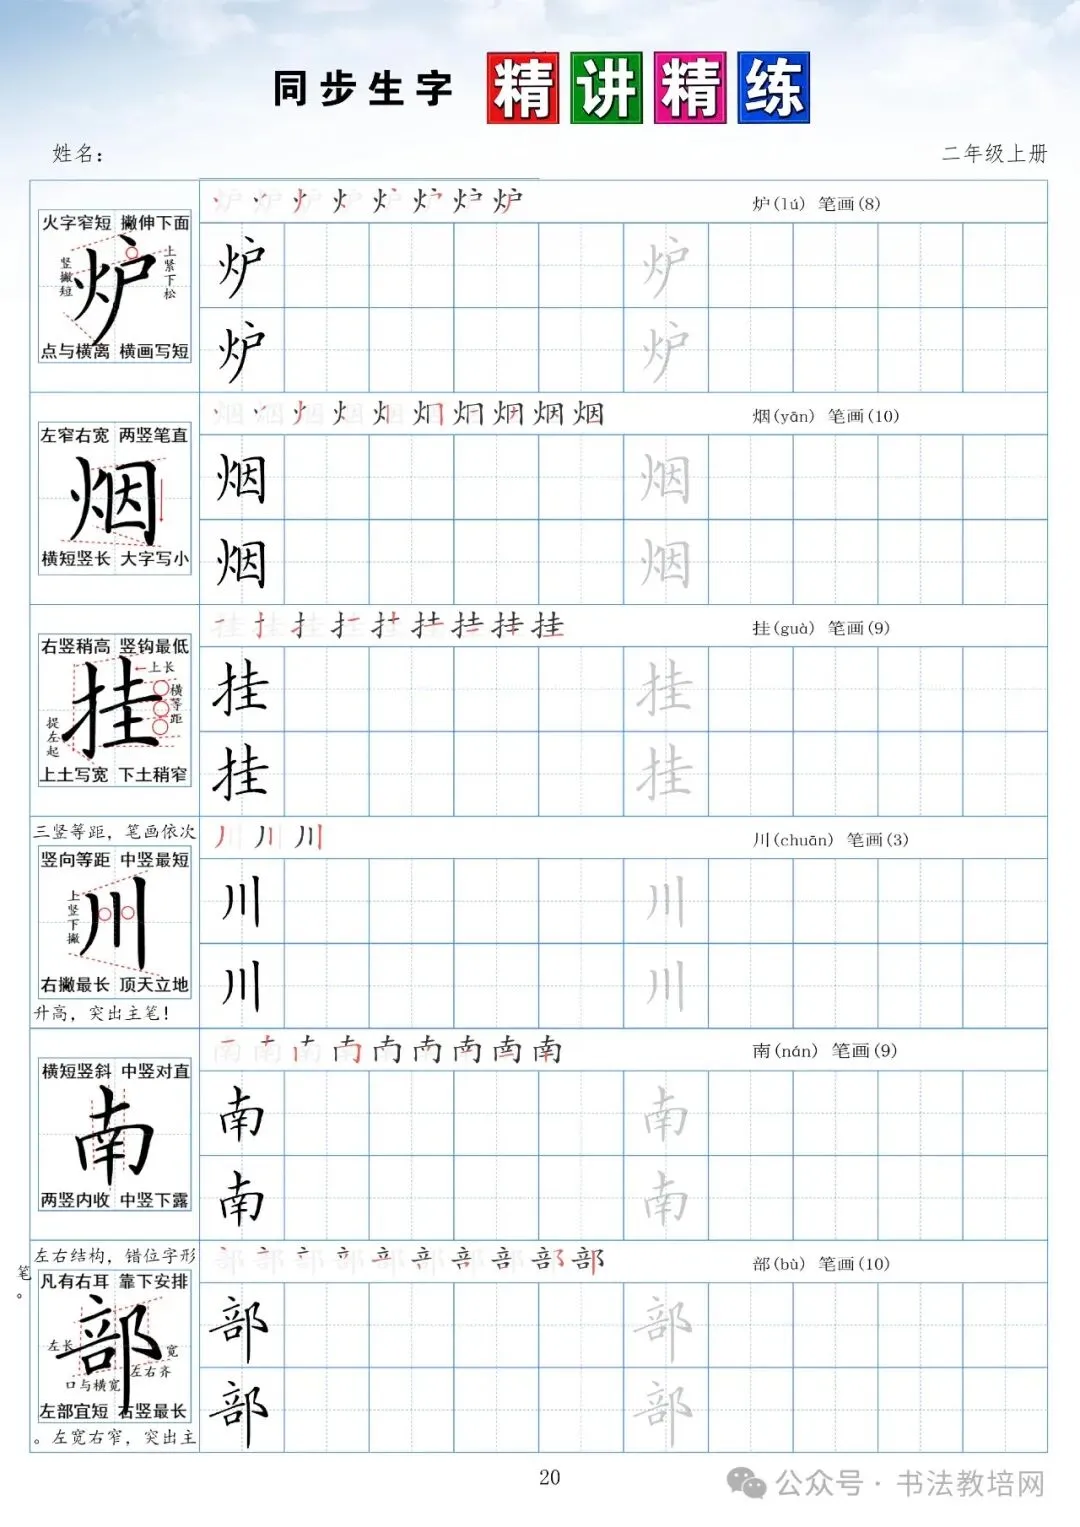 同步生字 精讲精练
姓名：
二年级上册
炉(lú) 笔画(8)
火字窄短 撇伸下面
竖撇短
上紧下松
炉
点与横离 横画写短
炉 炉
炉 炉
烟(yān) 笔画(10)
左窄右宽 两竖笔直
烟
横短竖长 大字写小
烟 烟
烟 烟
挂(guà) 笔画(9)
右竖稍高 竖钩最低
上长
横等距
提左起
挂
上土写宽 下土稍窄
挂 挂
挂 挂
川(chuān) 笔画(3)
三竖等距，笔画依次
竖向等距 中竖最短
上竖下撇
川
右撇最长 顶天立地
升高，突出主笔！
川 川
川 川
南(nán) 笔画(9)
横短竖斜 中竖对直
南
两竖内收 中竖下露
南 南
南 南
部(bù) 笔画(10)
左右结构，错位字形
凡有右耳 靠下安排
左长
宽
左右齐
口与横宽
部
左部宜短 右竖最长
。左宽右窄，突出主
笔。
部 部
部 部
20
公众号·书法教培网